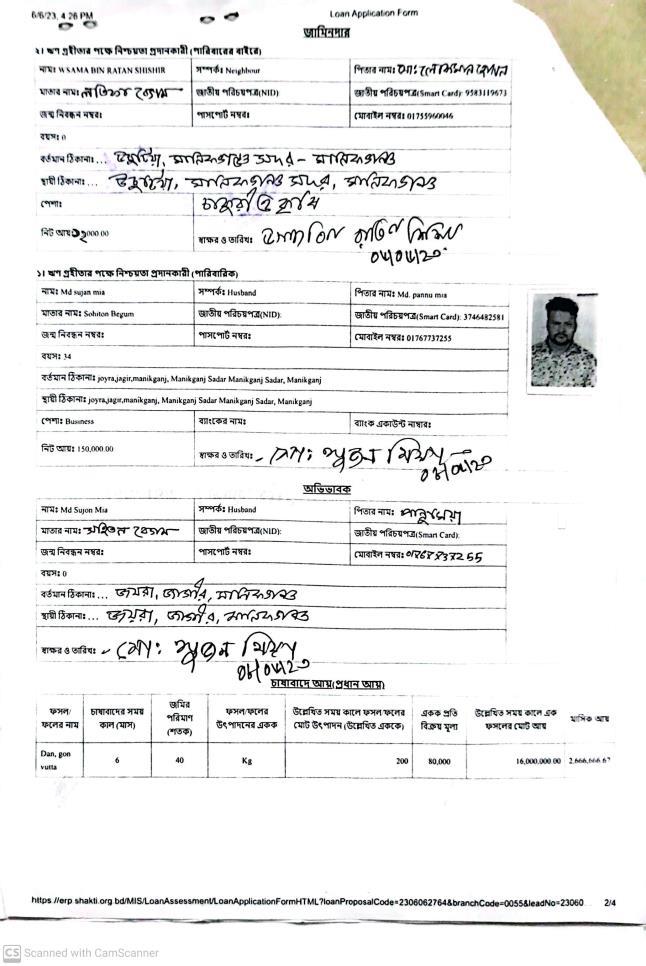 6/6/23, 4:26 PM Loan Application Form
জামিনদার
২। ঋণ গ্রহীতার পক্ষে নিশ্চয়তা প্রদানকারী (পারিবারের বাইরে)
নাম: WSAMA BIN RATAN SHISHIR সম্পর্ক: Neighbour পিতার নাম: মো:
মাতার নাম: বেগম জাতীয় পরিচয়পত্র(NID): জাতীয় পরিচয়পত্র(Smart Card): 9583119673
জন্ম নিবন্ধন নম্বর: পাসপোর্ট নম্বর: মোবাইল নম্বর: 01755960046
বয়স: 0
বর্তমান ঠিকানা: ... মানিকগঞ্জ সদর - মানিকগঞ্জ
স্থায়ী ঠিকানা: ... মানিকগঞ্জ সদর, মানিকগঞ্জ
পেশা: চাকুরী ও কৃষি
নিট আয়: স্বাক্ষর ও তারিখ:
১। ঋণ গ্রহীতার পক্ষে নিশ্চয়তা প্রদানকারী (পারিবারিক)
নাম: Md sujan mia সম্পর্ক: Husband পিতার নাম: Md. pannu mia
মাতার নাম: Sohiton Begum জাতীয় পরিচয়পত্র(NID): জাতীয় পরিচয়পত্র(Smart Card): 3746482581
জন্ম নিবন্ধন নম্বর: পাসপোর্ট নম্বর: মোবাইল নম্বর: 01767737255
বয়স: 34
বর্তমান ঠিকানা: joyra,jagir,manikganj, Manikganj Sadar Manikganj Sadar, Manikganj
স্থায়ী ঠিকানা: joyra,jagir,manikganj, Manikganj Sadar Manikganj Sadar, Manikganj
পেশা: Business ব্যাংকের নাম: ব্যাংক একাউন্ট নাম্বার:
নিট আয়: 150,000.00 স্বাক্ষর ও তারিখ: মো: সুজন মিয়া
অভিভাবক
নাম: Md Sujon Mia সম্পর্ক: Husband পিতার নাম: পান্নু মিয়া
মাতার নাম: সহিতন বেগম জাতীয় পরিচয়পত্র(NID): জাতীয় পরিচয়পত্র(Smart Card):
জন্ম নিবন্ধন নম্বর: পাসপোর্ট নম্বর: মোবাইল নম্বর:
বয়স: 0
বর্তমান ঠিকানা: ... জয়রা, জাগীর, মানিকগঞ্জ
স্থায়ী ঠিকানা: ... জয়রা, জাগীর, মানিকগঞ্জ
স্বাক্ষর ও তারিখ: মো: সুজন মিয়া
চাষাবাদে আয়(প্রধান আয়)
ফসল/ফলের নাম চাষাবাদের সময় কাল (মাস) জমির পরিমাণ (শতক) ফসল/ফলের উৎপাদনের একক উল্লেখিত সময় কালে ফসল ফলের মোট উৎপাদন (উল্লেখিত এককে) একক প্রতি বিক্রয় মূল্য উল্লেখিত সময় কালে এক ফসলের মোট আয় মাসিক আয়
Dan, gon vutta 6 40 Kg 200 80,000 16,000,000.00 2,666,666.67
https://erp.shakti.org.bd/MIS/LoanAssessment/LoanApplicationFormHTML?loanProposalCode=2306062764&branchCode=0055&leadNo=23060... 2/4
CS Scanned with CamScanner